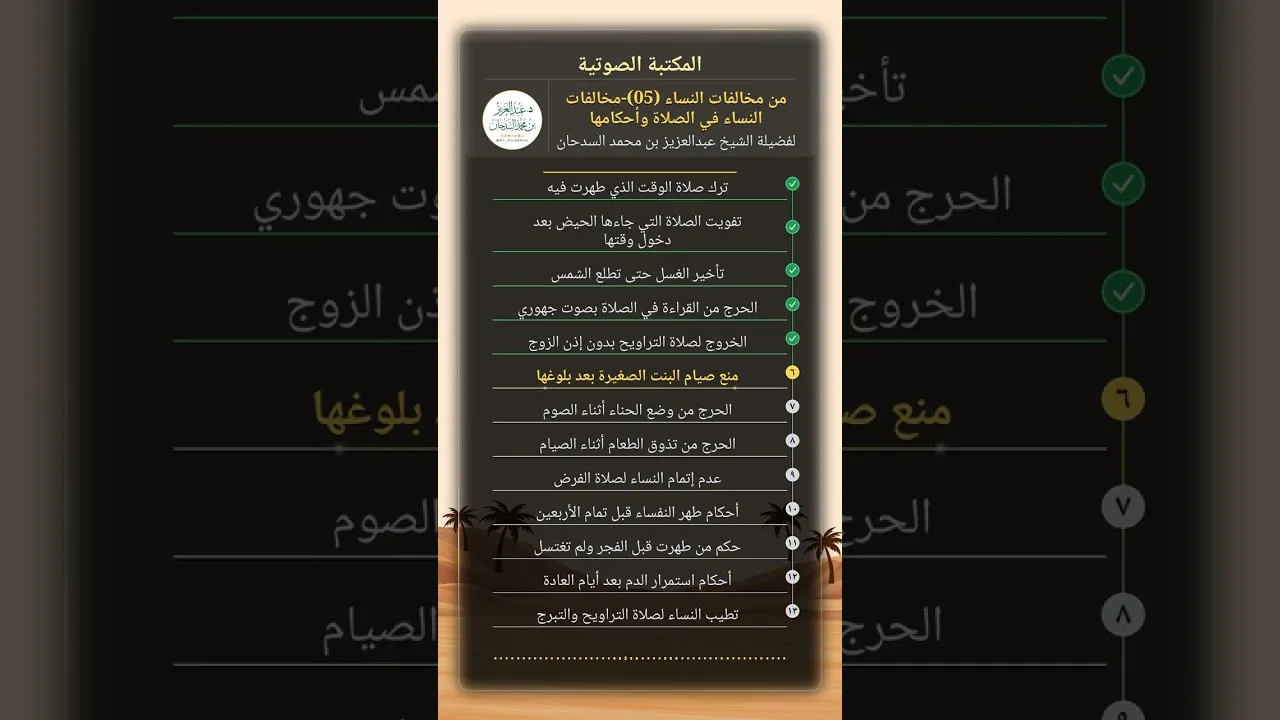 المكتبة الصوتية
من مخالفات النساء (05)-مخالفات
النساء في الصلاة وأحكامها
لفضيلة الشيخ عبدالعزيز بن محمد السدحان
د. عبد العزيز
بن محمد السدحان
ترك صلاة الوقت الذي طهرت فيه
تفويت الصلاة التي جاءها الحيض بعد
دخول وقتها
تأخير الغسل حتى تطلع الشمس
الحرج من القراءة في الصلاة بصوت جهوري
الخروج لصلاة التراويح بدون إذن الزوج
٦ منع صيام البنت الصغيرة بعد بلوغها
٧ الحرج من وضع الحناء أثناء الصوم
٨ الحرج من تذوق الطعام أثناء الصيام
٩ عدم إتمام النساء لصلاة الفرض
١٠ أحكام طهر النفساء قبل تمام الأربعين
١١ حكم من طهرت قبل الفجر ولم تغتسل
١٢ أحكام استمرار الدم بعد أيام العادة
١٣ تطيب النساء لصلاة التراويح والتبرج